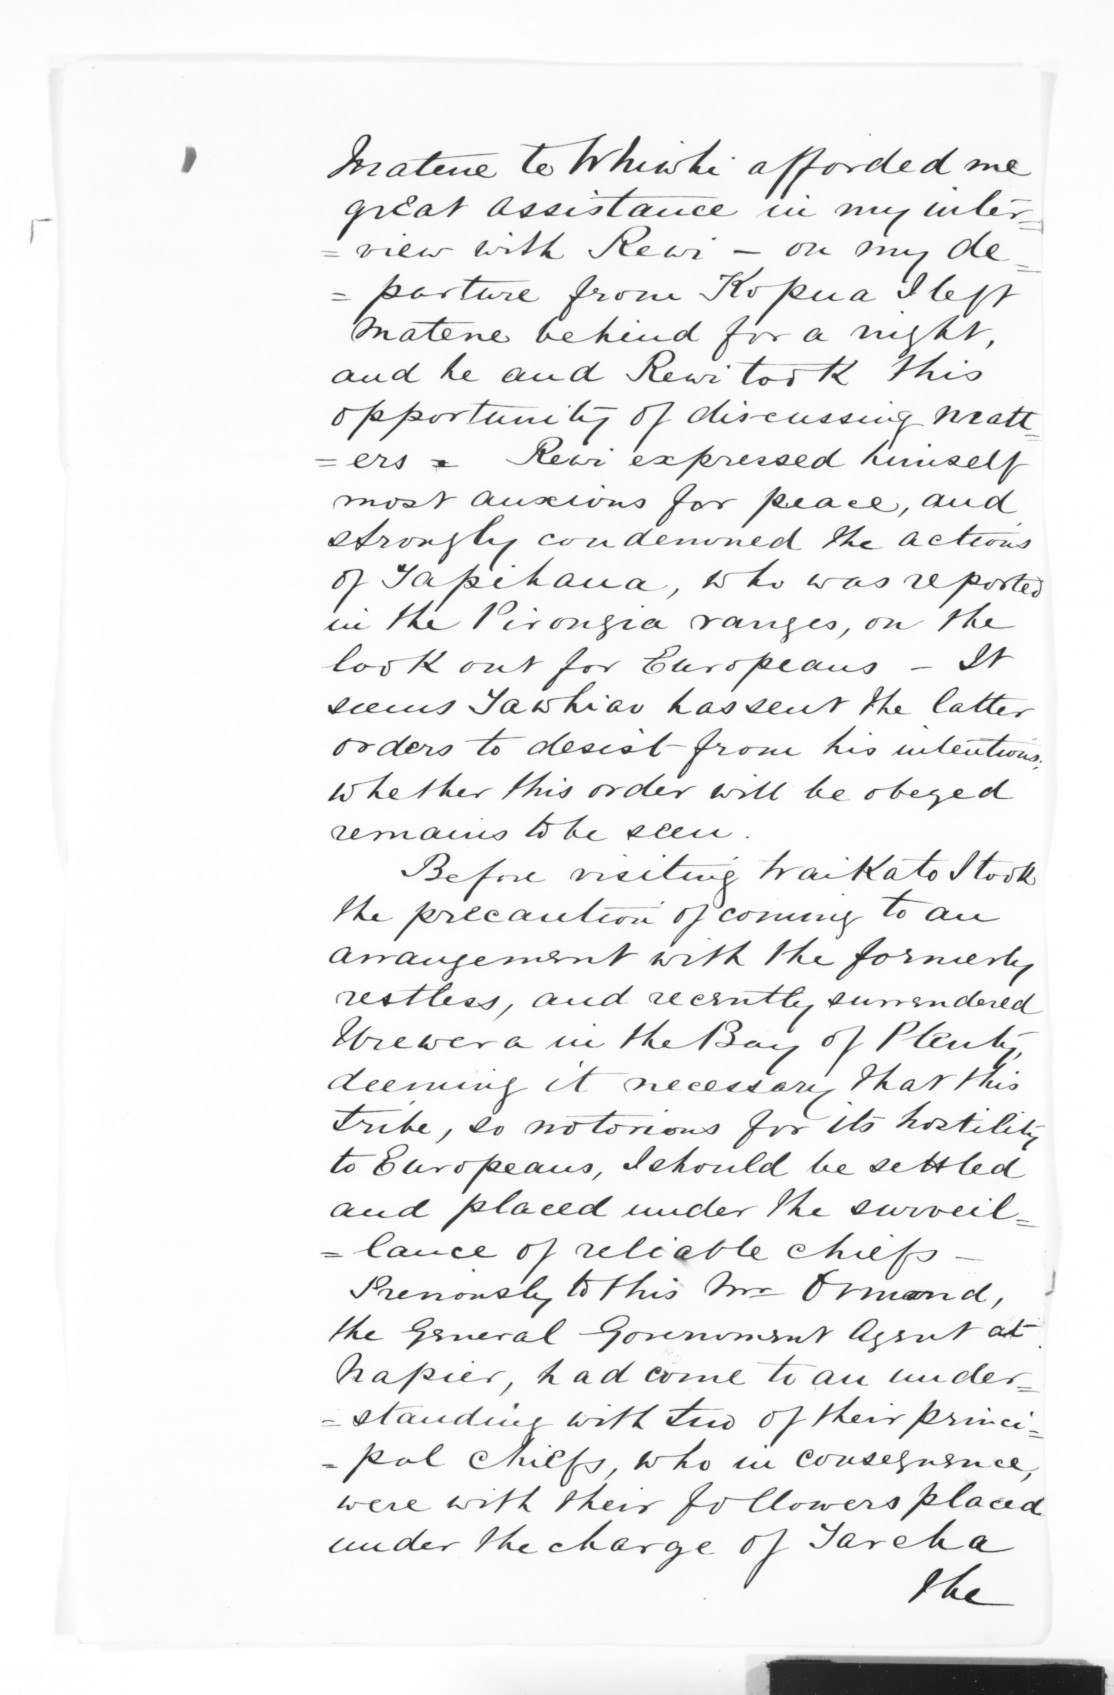 Matene te Whiwhi afforded me
great assistance in my inter=
=view with Rewi - on my de=
=parture from Kopua I left
Matene behind for a night,
and he and Rewi took this
opportunity of discussing matt=
=ers - Rewi expressed himself
most anxious for peace, and
strongly condemned the actions
of Tapihana, who was reported
in the Pirongia ranges, on the
look out for Europeans - It
seems Tawhiao has sent the latter
orders to desist from his intentions;
whether this order will be obeyed
remains to be seen.
Before visiting Waikato I took
the precaution of coming to an
arrangement with the formerly
restless, and recently surrendered
Urewera in the Bay of Plenty,
deeming it necessary that this
tribe, so notorious for its hostility
to Europeans, should be settled
and placed under the surveil=
=lance of reliable chiefs -
Previously to this Mr Ormond,
the General Government Agent at
Napier, had come to an under=
=standing with two of their princi=
=pal chiefs, who in consequence,
were with their followers placed
under the charge of Tareha
The